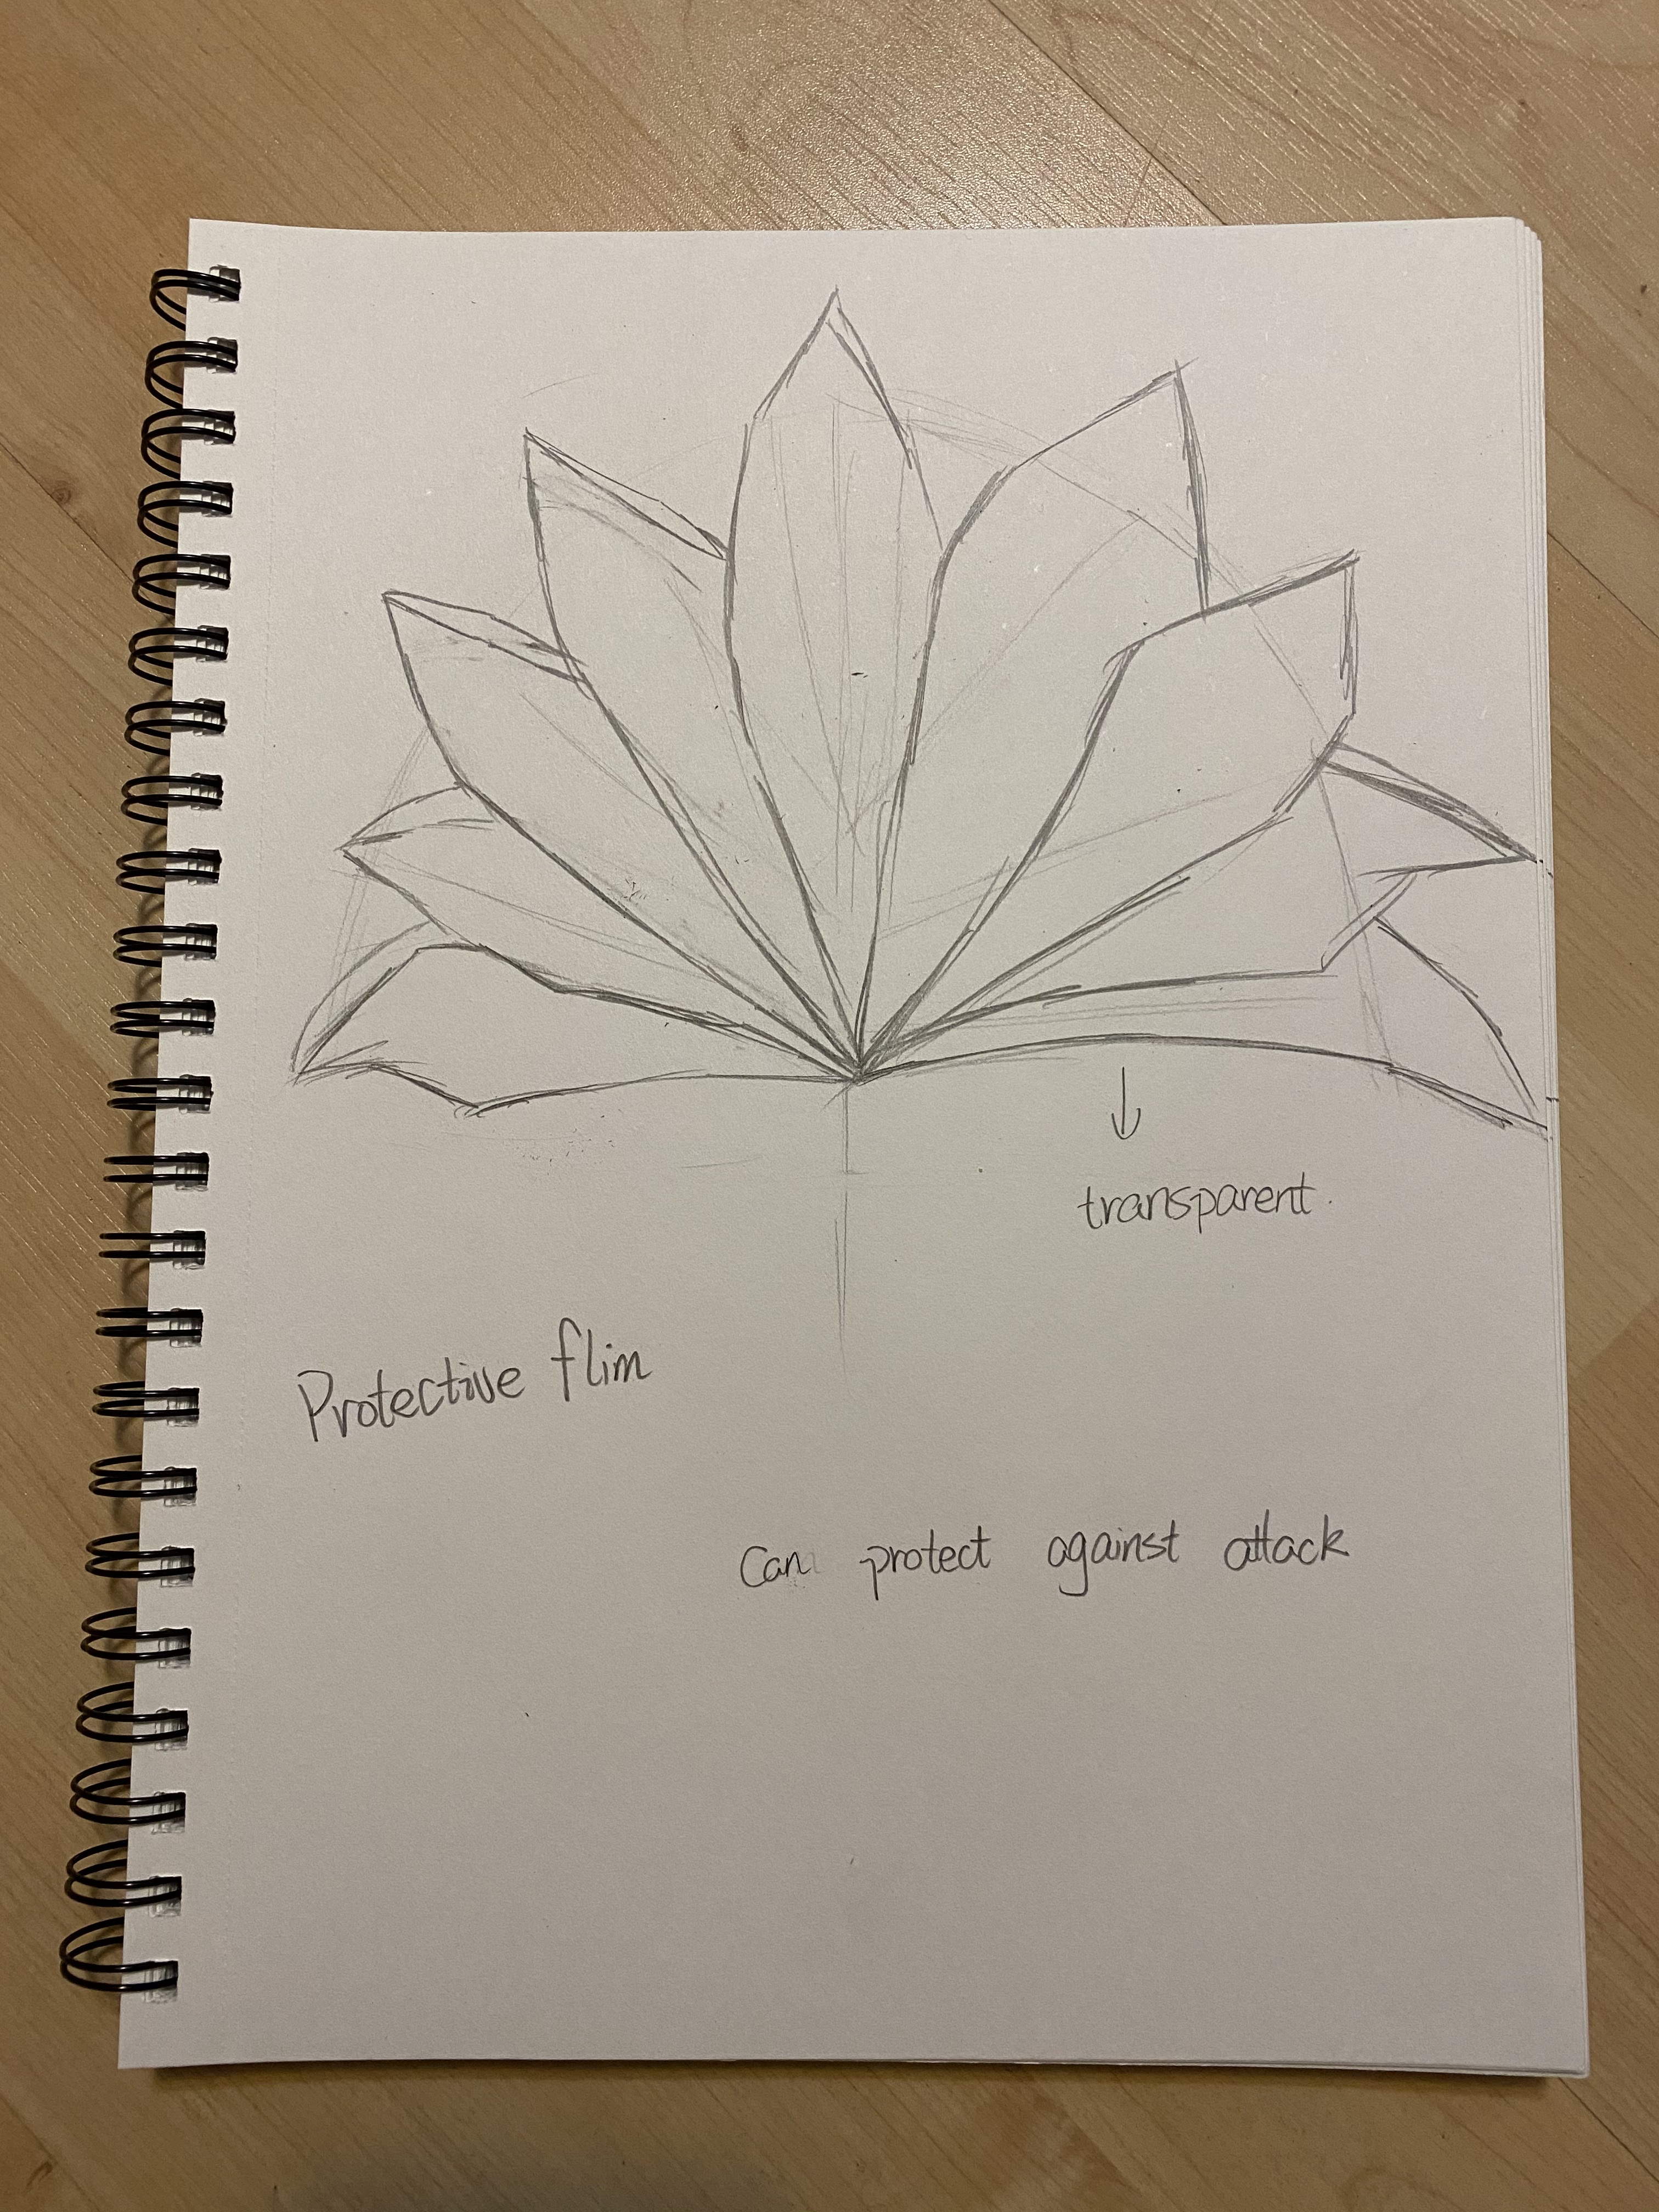 transparent.
Protective flim
Can protect against attack